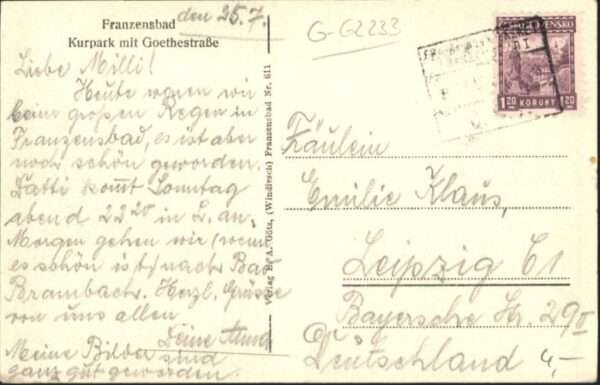 Franzensbad
Kurpark mit Goethestraße
den 25.7.
Liebe Milli!
Heute waren wir
beim großen Regen in
Franzensbad, es ist aber
noch schön geworden.
Vatti kommt Sonntag
abend 22 20 in L. an.
Morgen gehen wir (wenn
es schön ist) nach Bad
Brambach. Herzl. Grüsse
von uns allen
Deine Anna
Meine Bilder sind
ganz gut geworden.
Verlag H. A. Götz, (Windisch) Franzensbad Nr. 611
G-G2233
1 20 KORUNY 1 20
Fräulein
Emilie Klaus,
Leipzig C1
Bayersche Str. 29 II
Deutschland
4,-